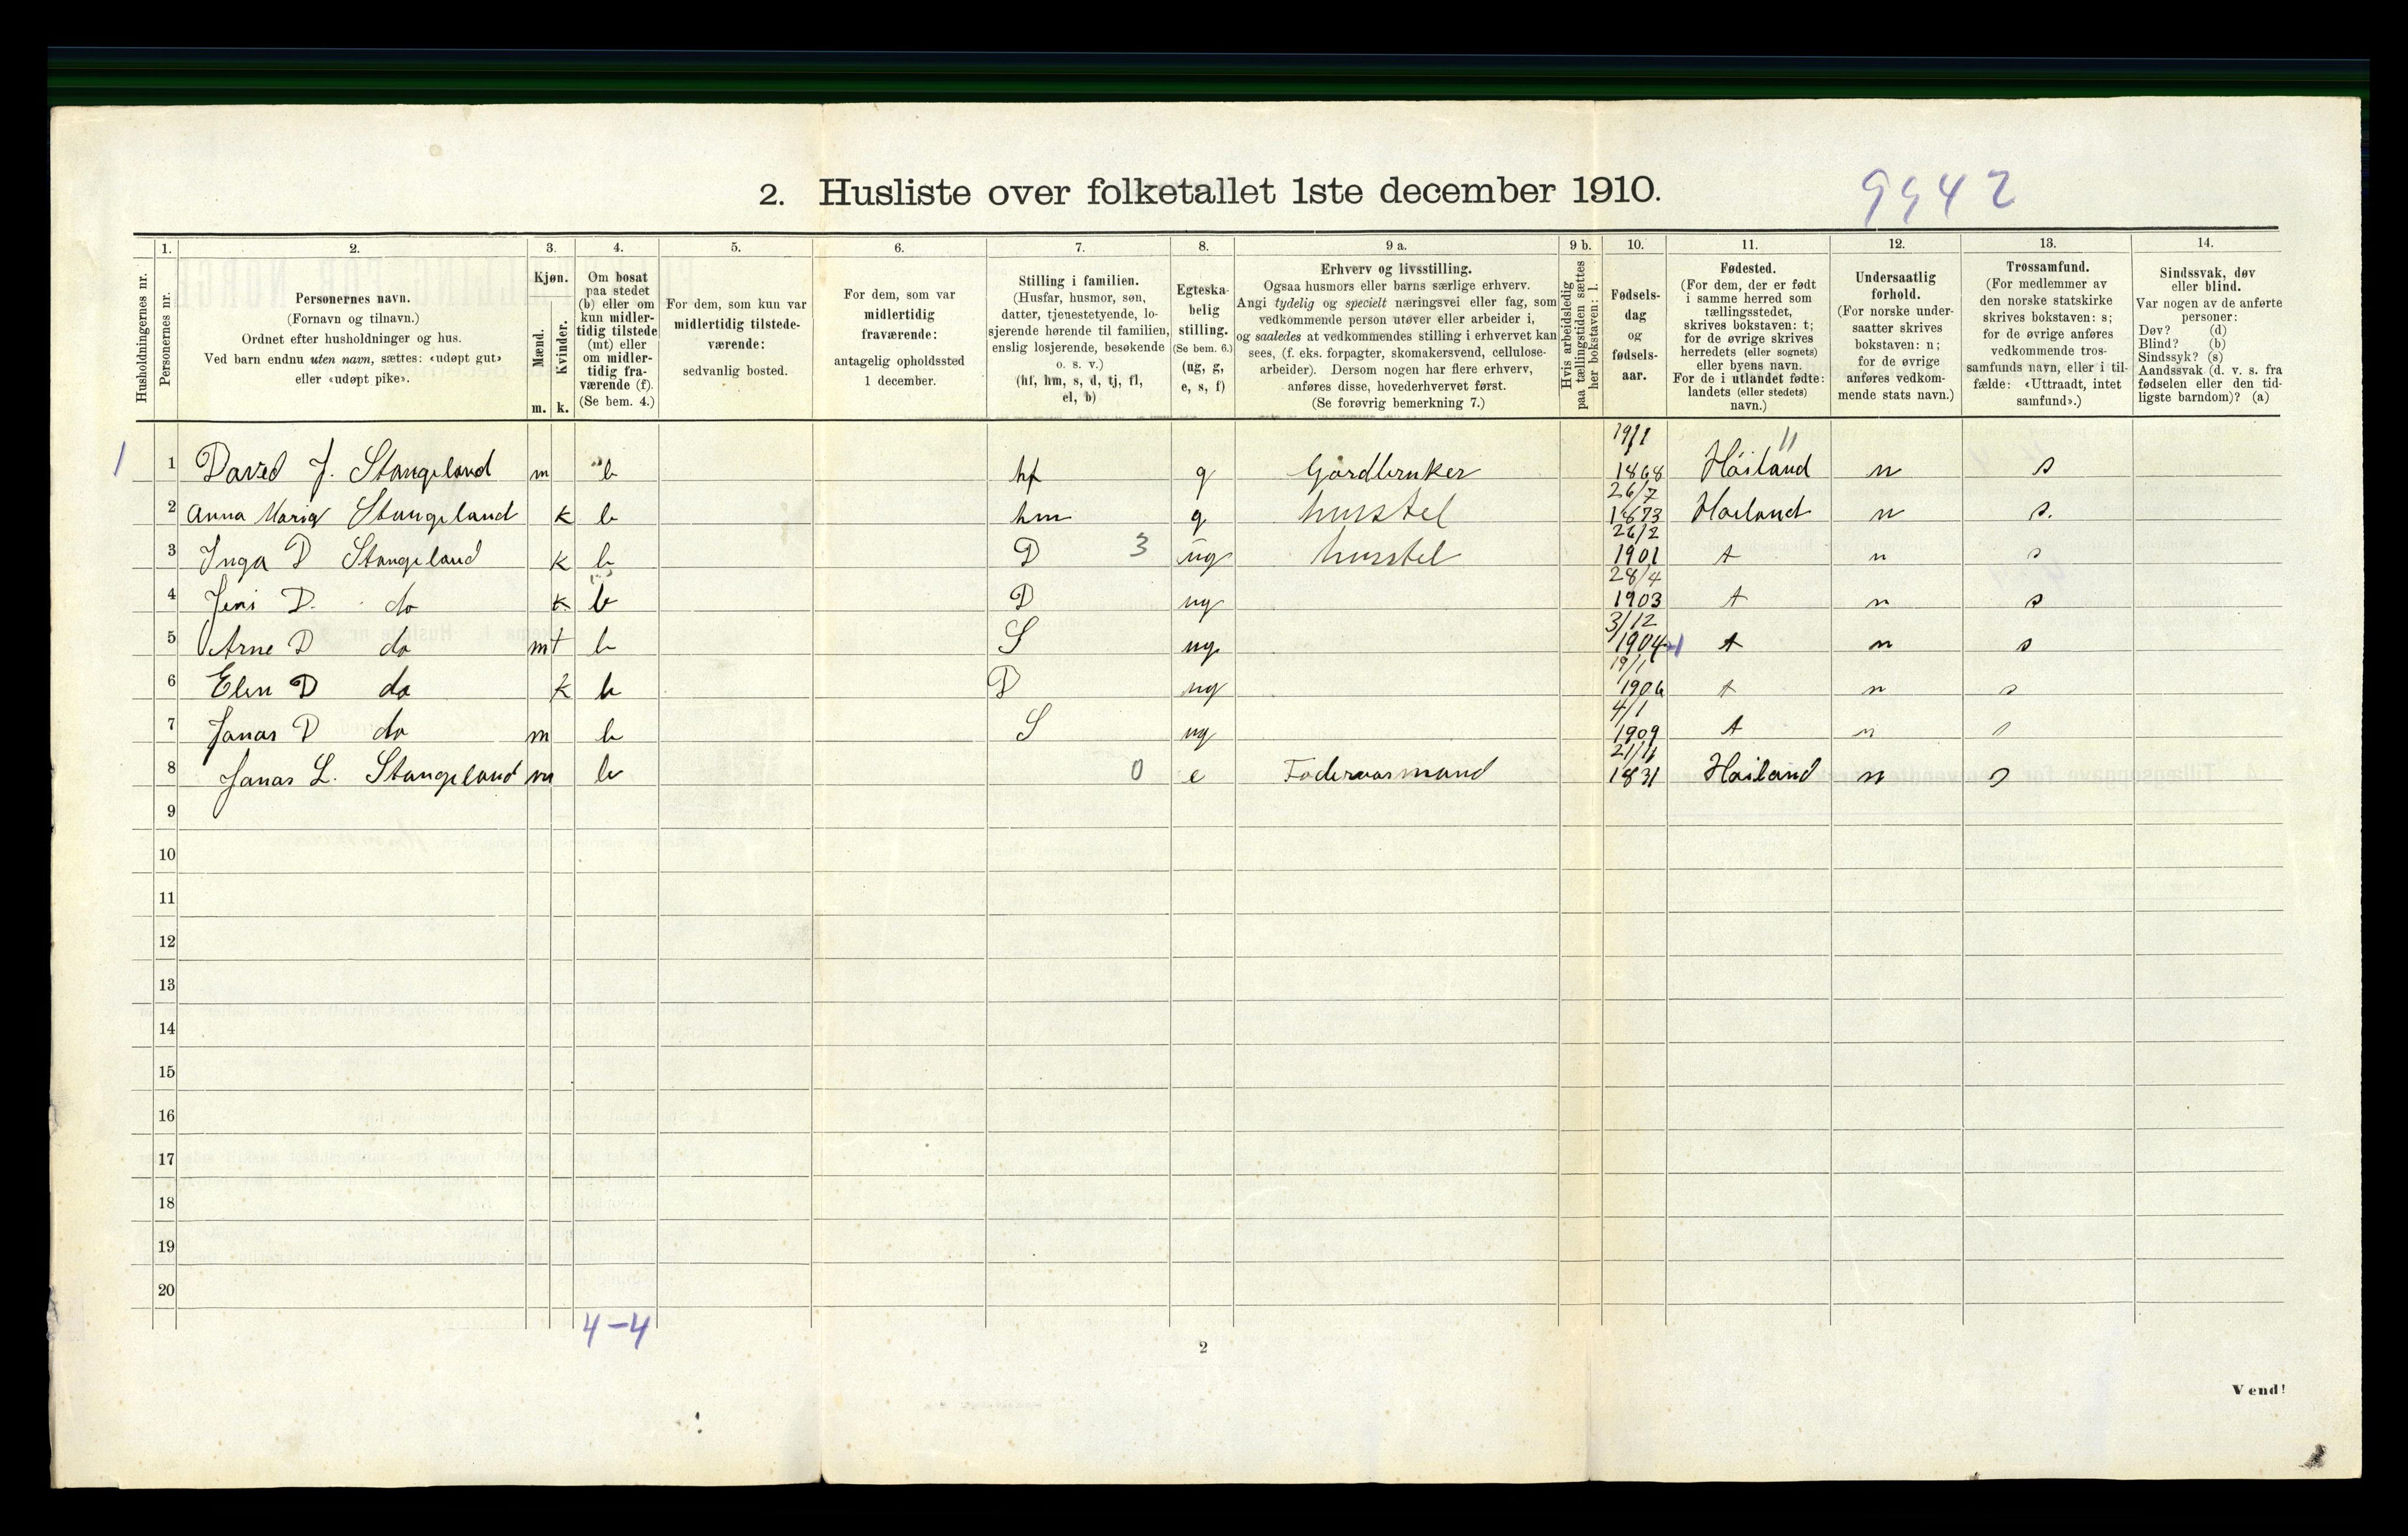 2. Husliste over folketallet 1ste december 1910.
9942
Husholdningernes nr.
1. Personernes nr.
2. Personernes navn.
(Fornavn og tilnavn.)
Ordnet efter husholdninger og hus.
Ved barn endnu uten navn, sættes: «udøpt gut»
eller «udøpt pike».
3. Kjøn.
Mænd. Kvinder.
m. k.
4. Om bosat
paa stedet
(b) eller om
kun midler-
tidig tilstede
(mt) eller
om midler-
tidig fra-
værende (f).
(Se bem. 4.)
5. For dem, som kun var
midlertidig tilstede-
værende:
sedvanlig bosted.
6. For dem, som var
midlertidig
fraværende:
antagelig opholdssted
1 december.
7. Stilling i familien.
(Husfar, husmor, søn,
datter, tjenestetyende, lo-
sjerende hørende til familien,
enslig losjerende, besøkende
o. s. v.)
(hf, hm, s, d, tj, fl,
el, b)
8. Egteska-
belig
stilling.
(Se bem. 6.)
(ug, g,
e, s, f)
9 a. Erhverv og livsstilling.
Ogsaa husmors eller barns særlige erhverv.
Angi tydelig og specielt næringsvei eller fag, som
vedkommende person utøver eller arbeider i,
og saaledes at vedkommendes stilling i erhvervet kan
sees, (f. eks. forpagter, skomakersvend, cellulose-
arbeider). Dersom nogen har flere erhverv,
anføres disse, hovederhvervet først.
(Se forøvrig bemerkning 7.)
9 b. Hvis arbeidsledig
paa tællingstiden sættes
her bokstaven: l.
10. Fødsels-
dag
og
fødsels-
aar.
11. Fødested.
(For dem, der er født
i samme herred som
tællingsstedet,
skrives bokstaven: t;
for de øvrige skrives
herredets (eller sognets)
eller byens navn.
For de i utlandet fødte:
landets (eller stedets)
navn.)
12. Undersaatlig
forhold.
(For norske under-
saatter skrives
bokstaven: n;
for de øvrige
anføres vedkom-
mende stats navn.)
13. Trossamfund.
(For medlemmer av
den norske statskirke
skrives bokstaven: s;
for de øvrige anføres
vedkommende tros-
samfunds navn, eller i til-
fælde: «Uttraadt, intet
samfund».)
14. Sindssvak, døv
eller blind.
Var nogen av de anførte
personer:
Døv? (d)
Blind? (b)
Sindssyk? (s)
Aandssvak (d. v. s. fra
fødselen eller den tid-
ligste barndom)? (a)
1 1 David J. Stangeland m b hf g Gardbruker 19/1 1868 Høiland 11 n s
2 Anna Maria Stangeland k b hm g husstel 26/7 1873 Hoiland n s.
3 Inga D Stangeland k b D 3 ug husstel 26/2 1901 t n s
4 Jeni D. do k b D ug 28/4 1903 t n s
5 Arne D do m b S ug 3/12 1904 t n s
6 Elen D do k b D ug 19/1 1906 t n s
7 Jonas D do m b S ug 4/1 1909 t n s
8 Jonas L. Stangeland m b 0 e Foderaasmand 21/11 1831 Hoiland n s
9
10
11
12
13
14
15
16
17
18
19
20
4-4
2
Vend!